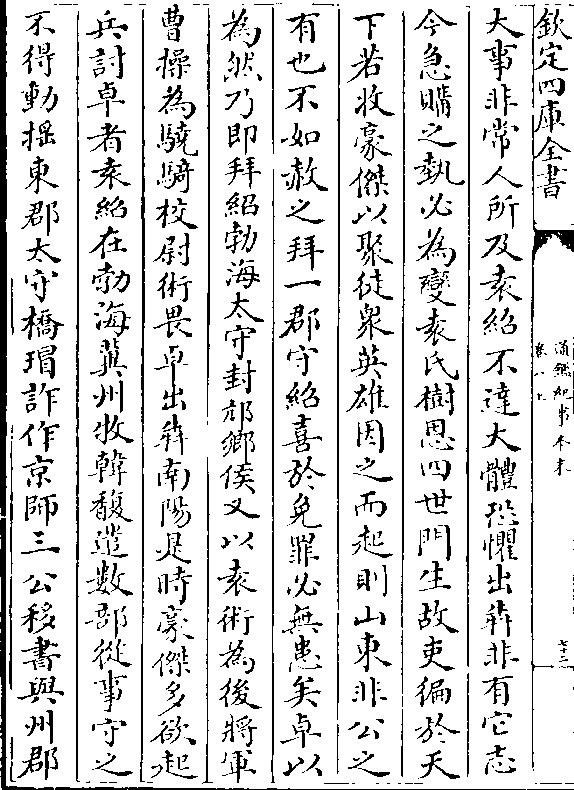 欽定四庫全書
通鑑紀事本末
卷八上
七十三
大事非常人所及袁紹不達大體恐懼出犇非有它志
今急購之埶必為變袁氏樹恩四世門生故吏徧於天
下若收豪傑以聚徒衆英雄因之而起則山東非公之
有也不如赦之拜一郡守紹喜於免罪必無患矣卓以
為然乃即拜紹勃海太守封邟鄉侯又以袁術為後將軍
曹操為驍騎校尉術畏卓出犇南陽是時豪傑多欲起
兵討卓者袁紹在勃海冀州牧韓馥遣數部從事守之
不得動搖東郡太守橋瑁詐作京師三公移書與州郡